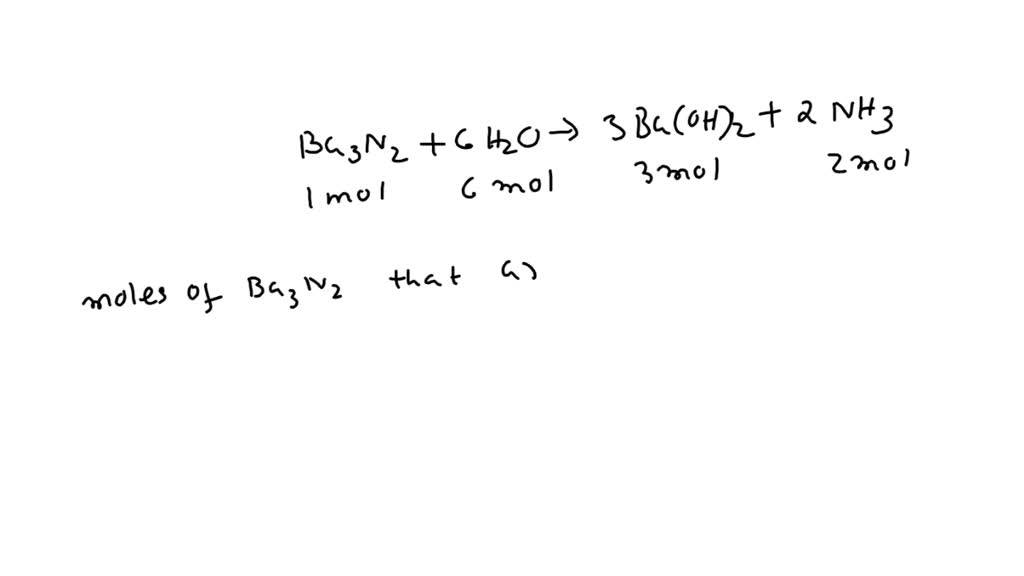 Ba₃N₂ + 6 H₂O → 3 Ba(OH)₂ + 2 NH₃
1 mol 6 mol 3 mol 2 mol
moles of Ba₃N₂ that